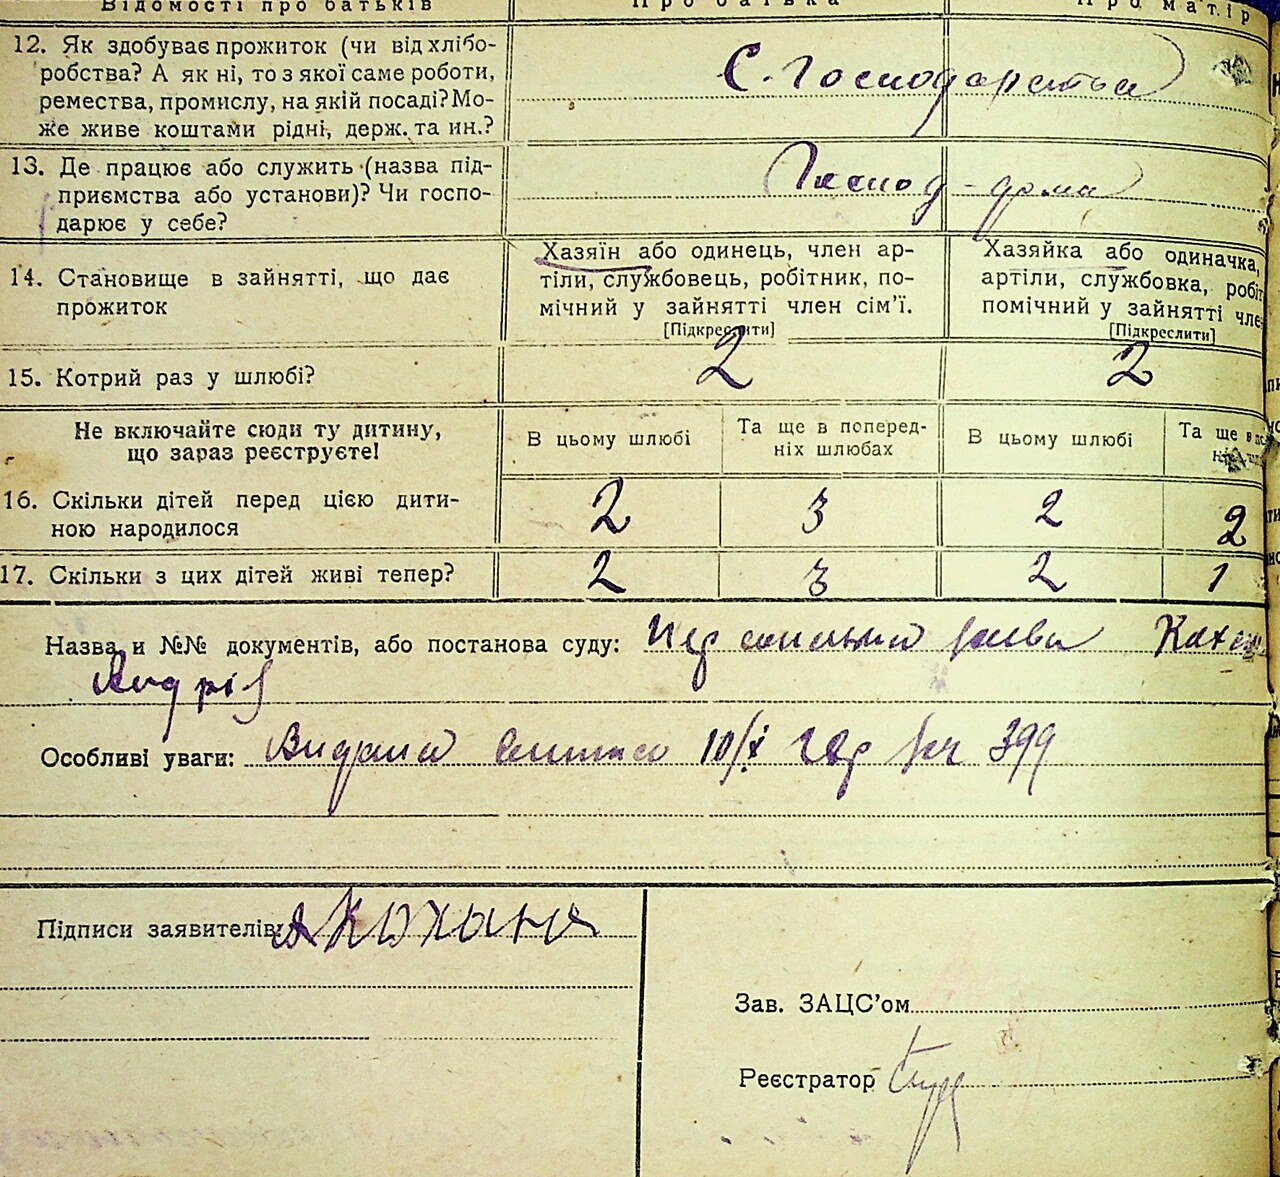 Відомості про батьків Про батька Про матір
12. Як здобуває прожиток (чи від хлібо-
робства? А як ні, то з якої саме роботи,
ремества, промислу, на якій посаді? Мо-
же живе коштами рідні, держ. та ин.?
С. Господарства
13. Де працює або служить (назва під-
приємства або установи)? Чи госпо-
дарює у себе?
Господ - дома
14. Становище в зайнятті, що дає
прожиток
Хазяїн або одинець, член ар-
тіли, службовець, робітник, по-
мічний у зайнятті член сім’ї.
[Підкреслити]
Хазяйка або одиначка,
артіли, службовка, робіт
помічний у зайнятті член
[Підкреслити]
15. Котрий раз у шлюбі? 2 2
Не включайте сюди ту дитину,
що зараз реєструєте!
В цьому шлюбі
Та ще в поперед-
ніх шлюбах
В цьому шлюбі
Та ще в
16. Скільки дітей перед цією дити-
ною народилося
2 3 2 2
17. Скільки з цих дітей живі тепер? 2 3 2 1
Назва и №№ документів, або постанова суду:
Андрія
Особливі уваги: 10/X 399
Підписи заявителів: А Кохана
Зав. ЗАЦС’ом
Реєстратор